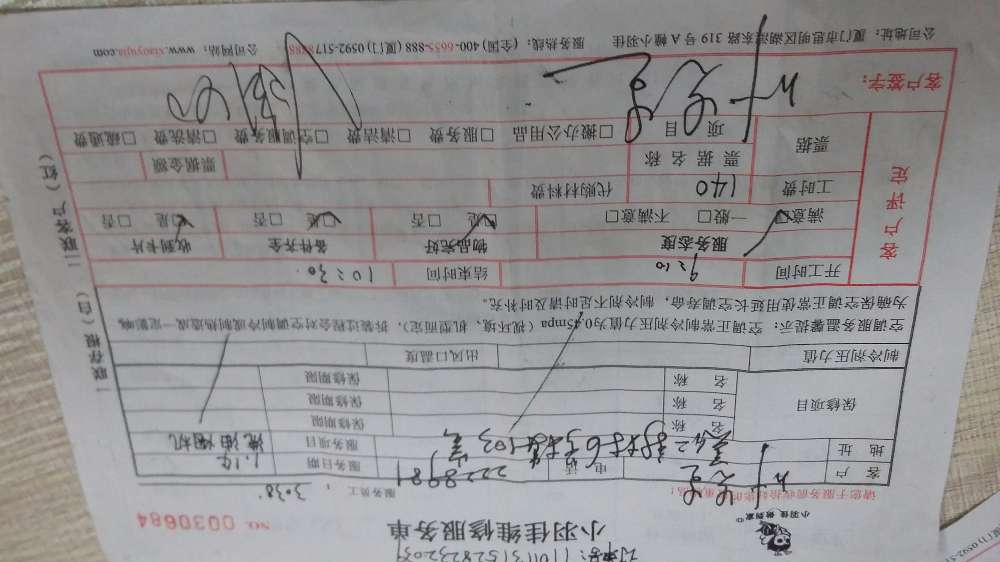 小羽佳 做到家
小羽佳维修服务单
NO. 0030684
服务员工：3038
客户 电话 2228981 服务日期
地址 6号楼103室 服务项目 洗油烟机
保修项目 名称 保修期限
名称 保修期限
名称 保修期限
制冷剂压力值 出风口温度
空调服务温馨提示：空调正常制冷剂压力值为0.45mpa（视环境、机型而定），拆装过程会对空调制冷或制热造成一定影响，
为确保空调正常使用延长空调寿命，制冷剂不足时请及时补充。
开工时间 9:10 结束时间 10:30
客户评定
服务态度 物品完好 备件齐全 收到卡片
满意 一般 不满意 是 否 是 否 是 否
工时费 140 代购材料费
票据 票据名称 票据金额
项目 搬办公用品 服务费 清洁费 空调服务费 清洗费 疏通费
客户签字：
公司地址：厦门市思明区湖滨东路319号A幢小羽佳 服务热线：(全国) 400-6655-888 (厦门) 0592-5178888 公司网站：www.xiaoyujia.com
一联存根（白） 二联客户（红）